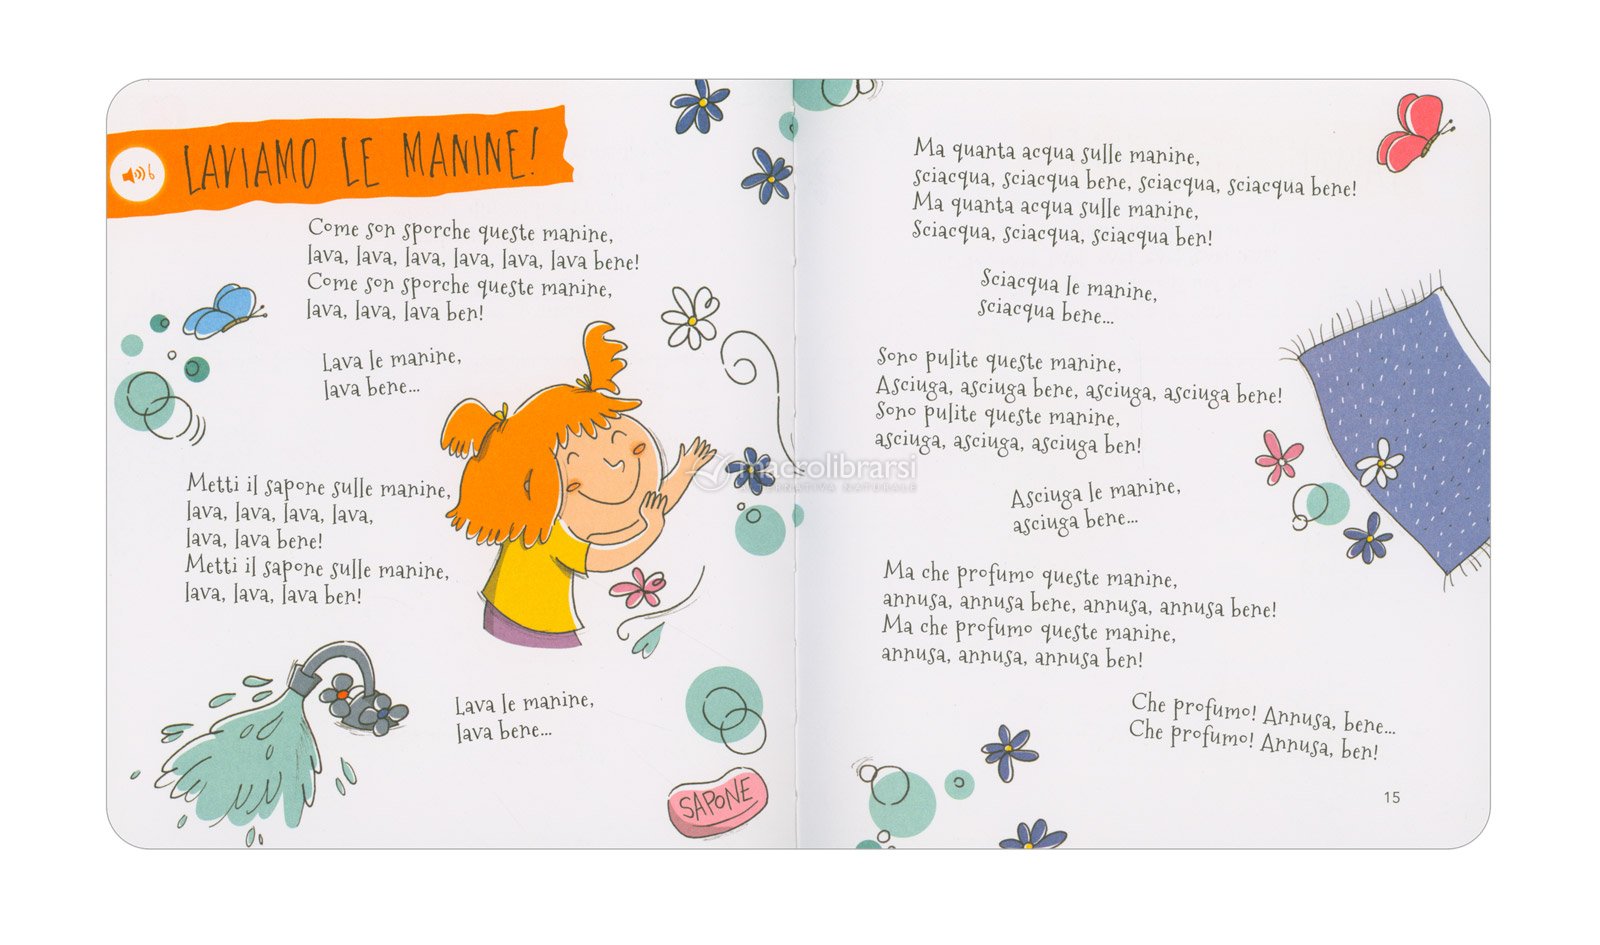 6
LAVIAMO LE MANINE!
Come son sporche queste manine,
lava, lava, lava, lava, lava, lava bene!
Come son sporche queste manine,
lava, lava, lava ben!
Lava le manine,
lava bene...
Metti il sapone sulle manine,
lava, lava, lava, lava,
lava, lava bene!
Metti il sapone sulle manine,
lava, lava, lava ben!
Lava le manine,
lava bene...
SAPONE
Ma quanta acqua sulle manine,
sciacqua, sciacqua bene, sciacqua, sciacqua bene!
Ma quanta acqua sulle manine,
Sciacqua, sciacqua, sciacqua ben!
Sciacqua le manine,
sciacqua bene...
Sono pulite queste manine,
Asciuga, asciuga bene, asciuga, asciuga bene!
Sono pulite queste manine,
asciuga, asciuga, asciuga ben!
Asciuga le manine,
asciuga bene...
Ma che profumo queste manine,
annusa, annusa bene, annusa, annusa bene!
Ma che profumo queste manine,
annusa, annusa, annusa ben!
Che profumo! Annusa, bene...
Che profumo! Annusa, ben!
15
macrolibrarsi